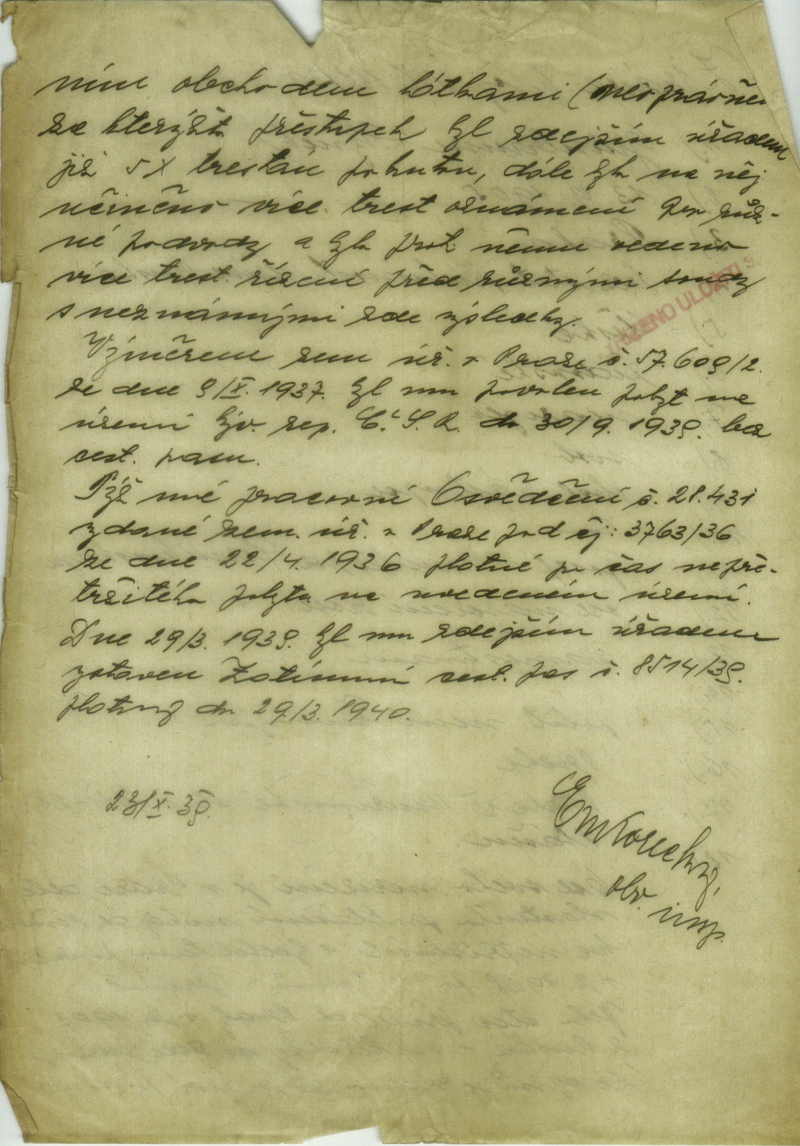 ním obchodem látkami (neoprávněn
za kterýžto přestupek byl zdejším úřadem
již 5X trestán pokutou, dále byla na něj
učiněno více trest oznámení pro růz-
né podvody a bylo proti němu vedeno
více trest. řízení před různými soudy
s neznámými zde výsledky.
Výměrem zem. úř. v Praze č. 57.609/2.
ze dne 9/X. 1937. byl mu povolen pobyt na
území býv. rep. Č.S.R. do 30/9. 1939. bez
cest. pasu.
Též má pracovní Osvědčení č. 21.431
vydané zem. úř. v Praze pod čj: 3763/36
ze dne 22/4. 1936 platné po čas nepře-
tržitého pobytu na uvedeném území.
Dne 29/3. 1939. byl mu zdejším úřadem
vystaven Zatímní cest. pas č. 8514/39.
platný do 29/3. 1940.
23/X. 39
obv. insp.